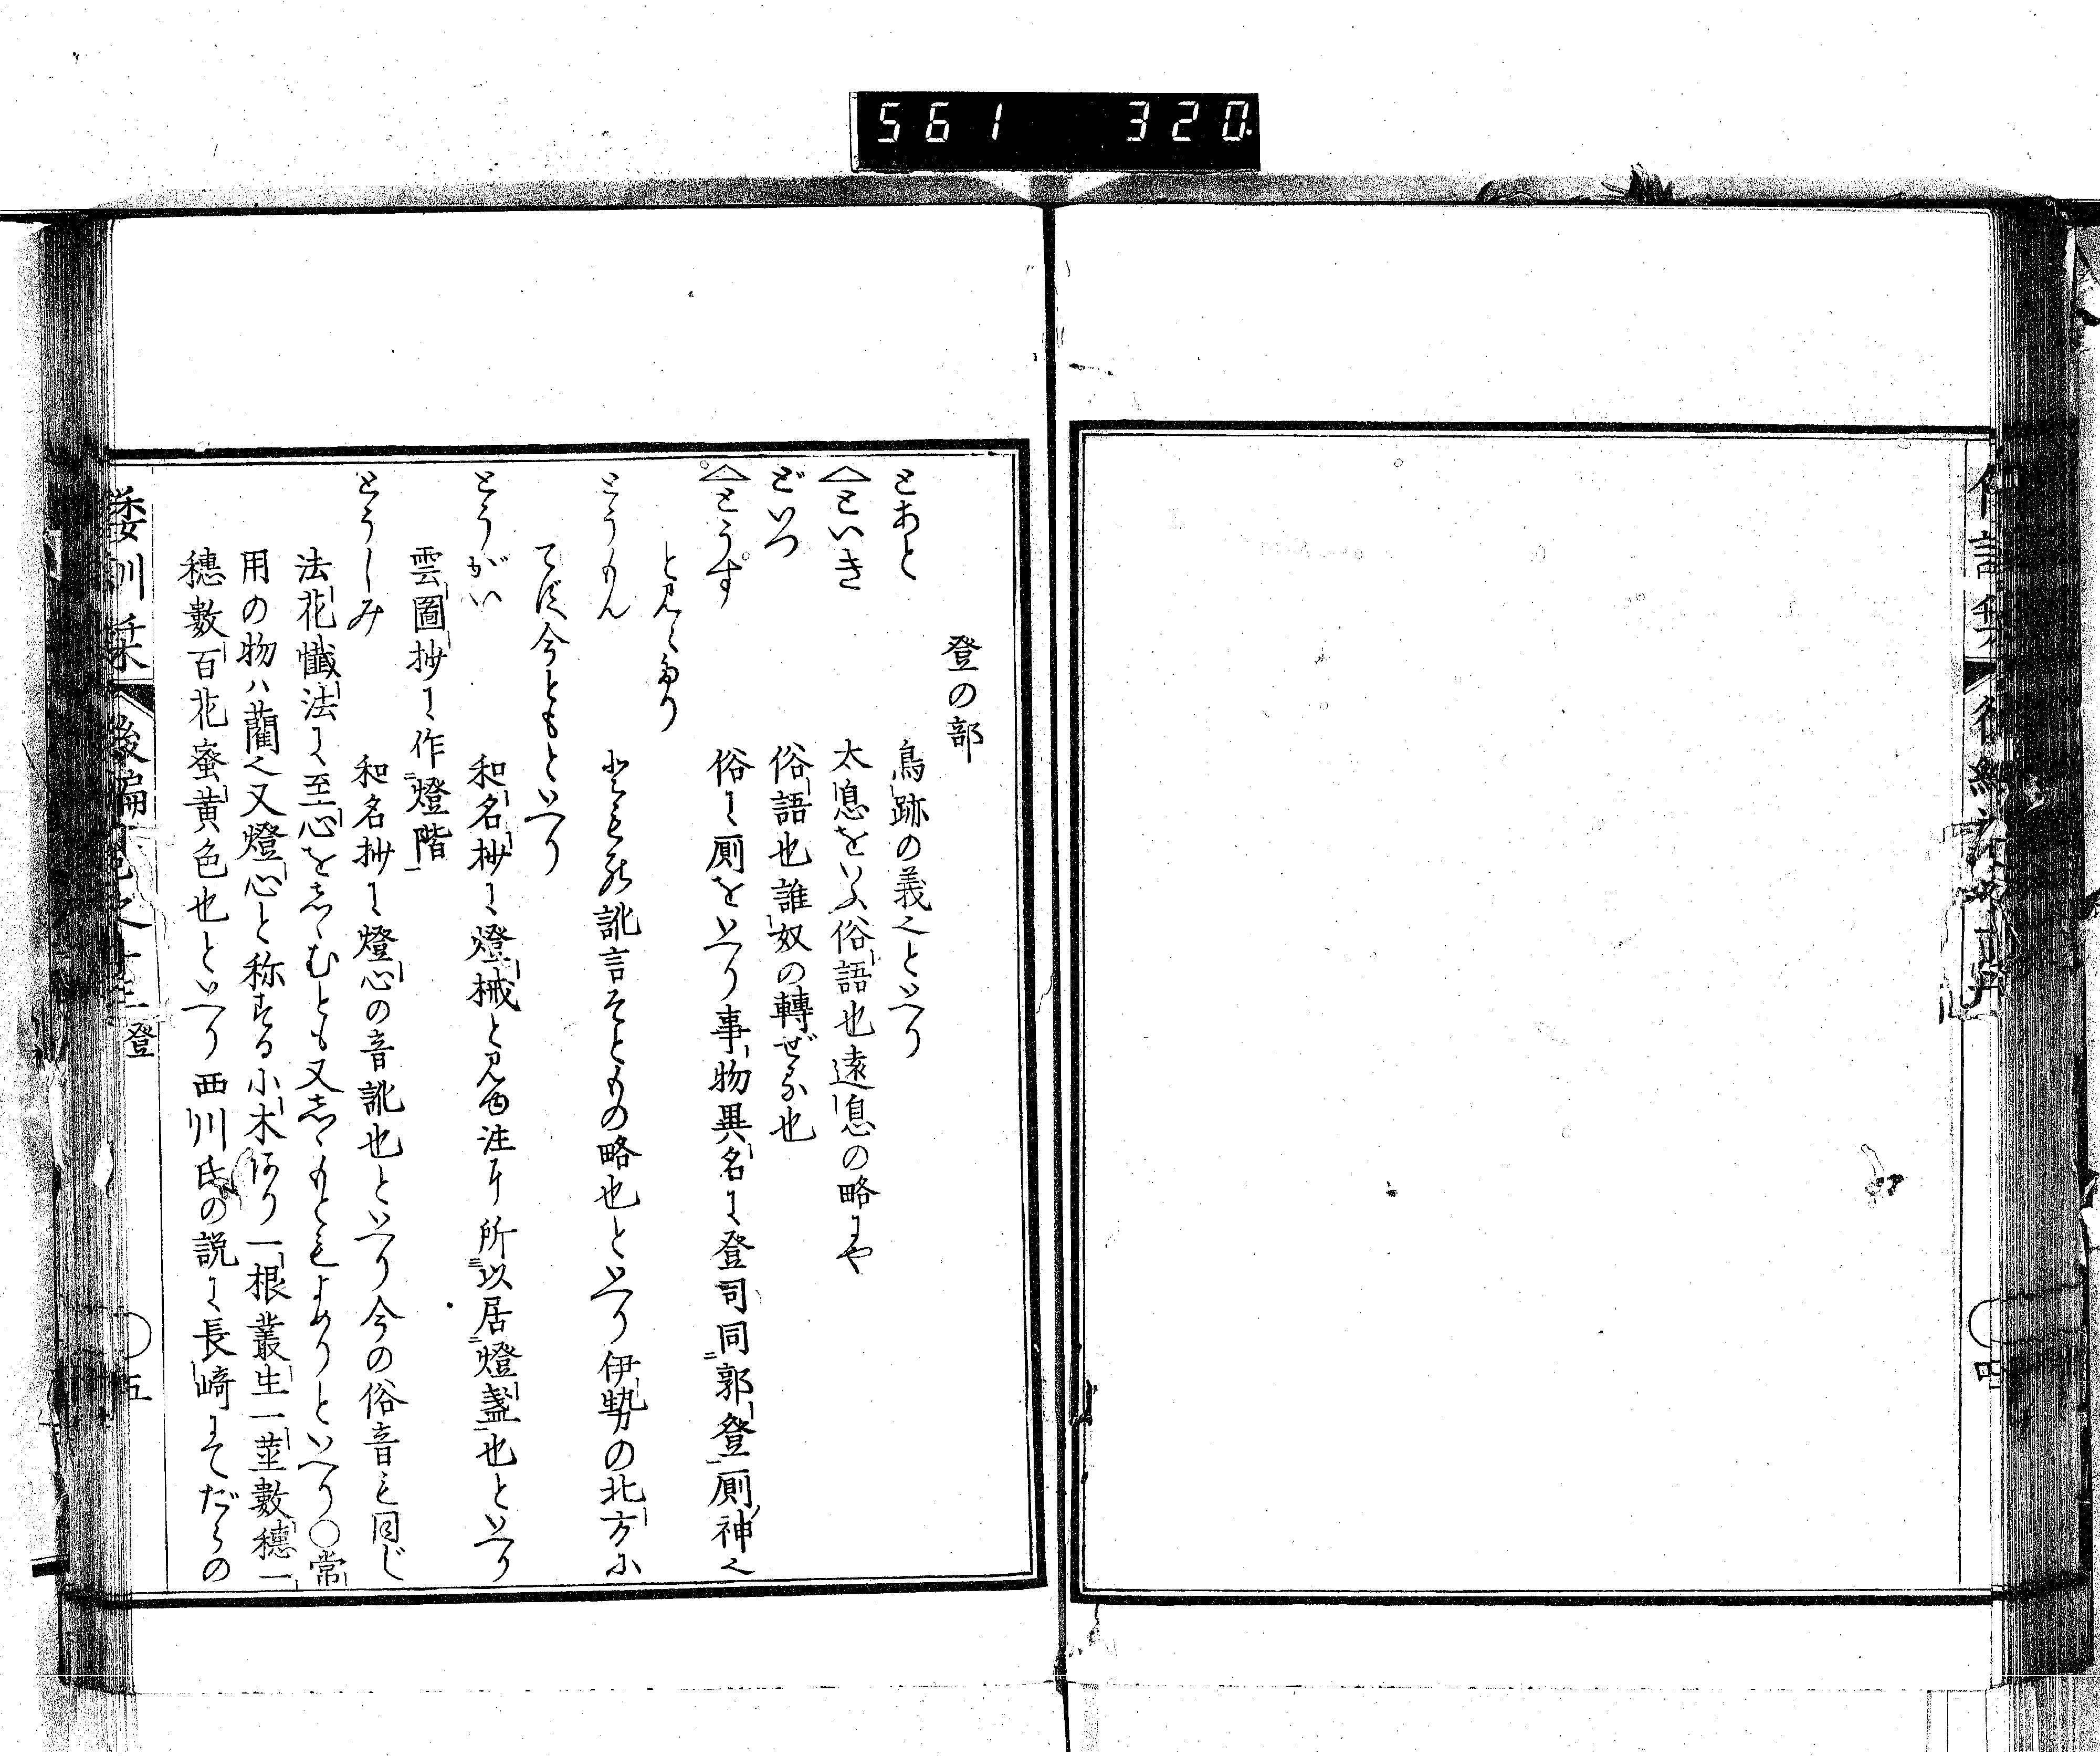 561 320
登の部
とあと 鳥跡の義也といへり
△といき 太息をいふ俗語也遠息の略にや
どいつ 俗語也誰奴の轉ぜる也
△とうす 俗に厠をいへり事物異名に登司同郭登厠神也
と見えたり
とうもん 訛言そともの略也といへり伊勢の北方に
てほ今ともといへり
とうがい 和名抄に燈械と見ゆ注に所以居燈盞也といへり
雲圖抄に作燈階
とうしみ 和名抄に燈心の音訛也といへり今の俗音も同じ
法花懺法に至心をしゝむとも又しゝもともよめりといへり○常
用の物ハ藺也又燈心と称する小木あり一根叢生一莖數穗一
穗數百花蜜黄色也といへり西川氏の説に長崎にてだらの
倭訓栞 後編 之十三 登 五
四